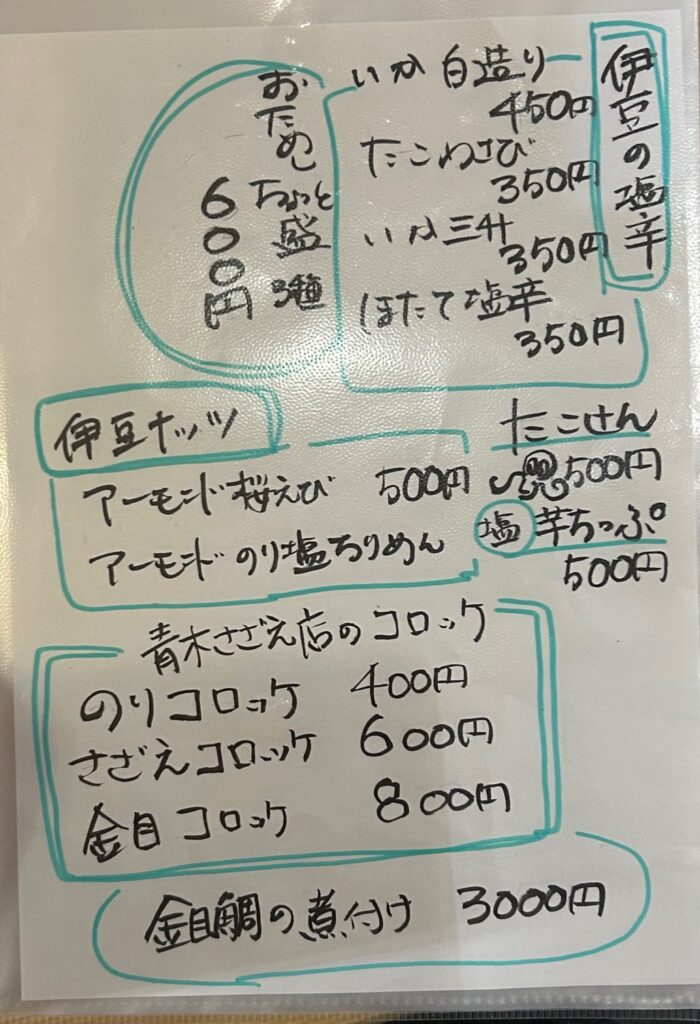 伊豆の塩辛
いか 白造り
450円
たこわさび
350円
いか三升
350円
ほたて塩辛
350円
おためし
ちょっと盛 3種
600円
伊豆ナッツ
アーモンド桜えび 500円
アーモンドのり塩ちりめん
たこせん
500円
塩 芋ちっぷ°
500円
青木さざえ店のコロッケ
のりコロッケ 400円
さざえコロッケ 600円
金目コロッケ 800円
金目鯛の煮付け 3000円